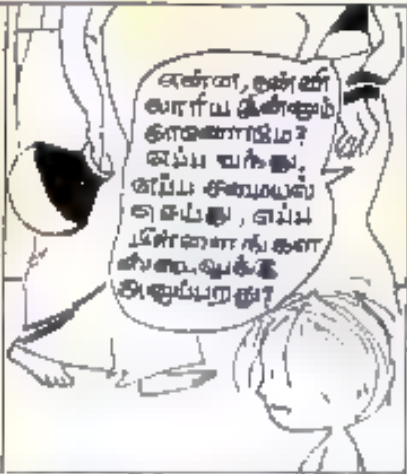 என்ன, தண்ணி
லாரிய இன்னும்
காணோமே?
எப்ப வந்து,
எப்ப சமையல்
செய்து, எப்ப
பிள்ளைங்கள
ஸ்கூலுக்கு
அனுப்புறது?